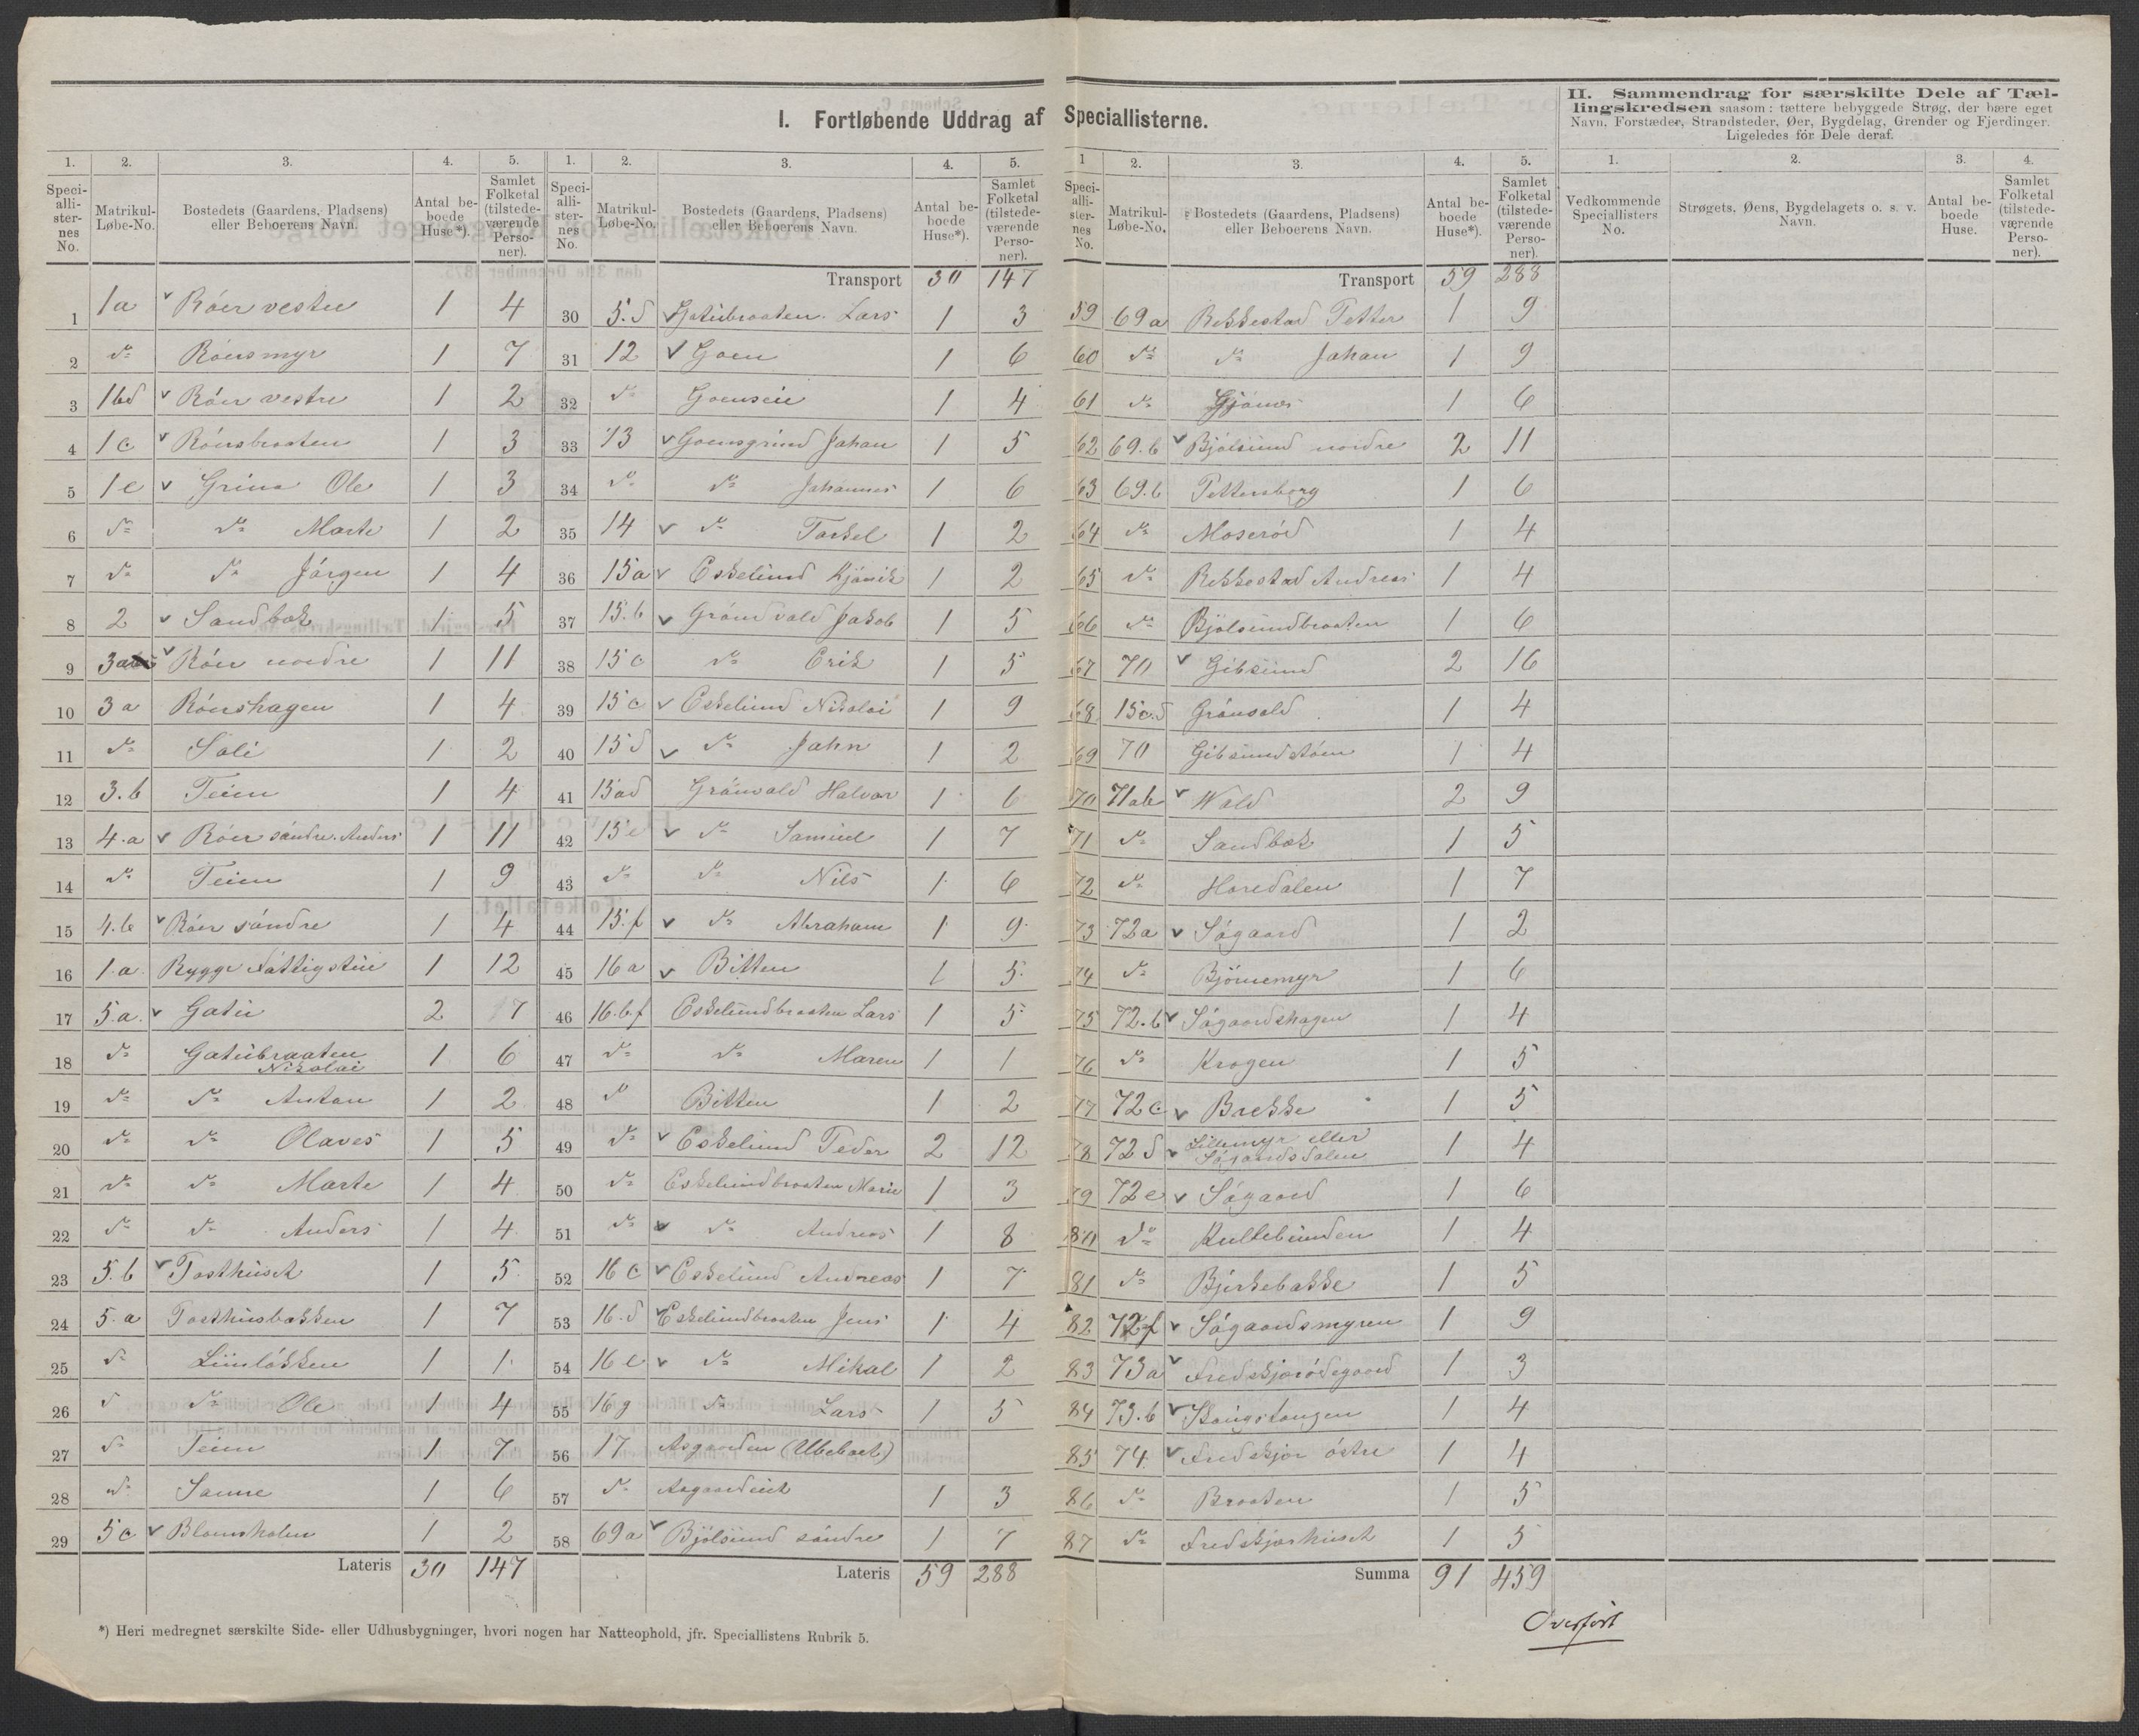 I. Fortløbende Uddrag af Speciallisterne.
II. Sammendrag for særskilte Dele af Tæl-
lingskredsen saasom: tættere bebyggede Strøg, der bære eget
Navn, Forstæder, Strandsteder, Øer, Bygdelag, Grender og Fjerdinger.
Ligeledes for Dele deraf.
1. 2. 3. 4. 5.
Speci-alli-ster-nes No. Matrikul-Løbe-No. Bostedets (Gaardens, Pladsens) eller Beboerens Navn. Antal be-boede Huse*). Samlet Folketal (tilstede-værende Perso-ner).
1 1a Röer vestre 1 4
2 do Röersmyr 1 7
3 1bd Röer vestre 1 2
4 1c Röersbraaten 1 3
5 1e Grina Ole 1 3
6 do do Marte 1 2
7 do do Jörgen 1 4
8 2 Sandbæk 1 5
9 3a Röer nordre 1 11
10 3a Röershagen 1 4
11 do Soli 1 2
12 3.b Teien 1 4
13 4.a Röer söndre. Anders 1 11
14 do Teien 1 9
15 4.b Röer söndre 1 4
16 1.a. Rygge Fattigstue 1 12
17 5.a. Gatu 2 7
18 do Gatubraaten Nikolai 1 6
19 do do Anton 1 2
20 do do Olaves 1 5
21 do do Marte 1 4
22 do do Anders 1 4
23 5.b Posthuset 1 5
24 5.a Posthusbakken 1 7
25 do Lunlökken 1 1
26 do do Ole 1 4
27 do Teien 1 7
28 do Sanne 1 6
29 5c Blomsholm 1 2
Lateris 30 147
1. 2. 3. 4. 5.
Speci-alli-ster-nes No. Matrikul-Løbe-No. Bostedets (Gaardens, Pladsens) eller Beboerens Navn. Antal be-boede Huse*). Samlet Folketal (tilstede-værende Perso-ner).
Transport 30 147
30 5.d Gatubraaten. Lars 1 3
31 12 Goen 1 6
32 do Goenseie 1 4
33 13 Goensgrind Johan 1 5
34 do do Johannes 1 6
35 14 do Torkel 1 2
36 15a Eskelund Kjönik 1 2
37 15.b Grönvold Jakob 1 5
38 15c do Erik 1 5
39 15c Eskelund Nikolai 1 9
40 15d do John 1 2
41 15ad Grönvold Halvor 1 6
42 15e do Samuel 1 7
43 do do Nils 1 6
44 15.f do Abraham 1 9
45 16a Bitten 1 5
46 16.b.f Eskelundbraaten Lars 1 5
47 do do Maren 1 1
48 do Bitten 1 2
49 do Eskelund Peder 2 12
50 do Eskelundbraaten Marie 1 3
51 do do Andreas 1 8
52 16c Eskelund Andreas 1 7
53 16.d Eskelundbraaten Jens 1 4
54 16e do Mikal 1 2
55 16g do Lars 1 5
56 17 Asgaarden (Ubeboet)
57 do Asgaardeiet 1 3
58 69a Bjölsund söndre 1 7
Lateris 59 288
1 2. 3. 4. 5.
Speci-alli-ster-nes No. Matrikul-Løbe-No. Bostedets (Gaardens, Pladsens) eller Beboerens Navn. Antal be-boede Huse*). Samlet Folketal (tilstede-værende Perso-ner).
Transport 59 288
59 69a Rekkestad Petter 1 9
60 do do Johan 1 9
61 do Gjönes 1 6
62 69.b Bjölsund nordre 2 11
63 69.b Pettersborg 1 6
64 do Moseröd 1 4
65 do Rekkestad Andreas 1 4
66 do Bjölsundbraaten 1 6
67 70 Gibsund 2 16
68 15c.d Grönvold 1 4
69 70 Gibsundstöen 1 4
70 71ab Wold 2 9
71 do Sandbæk 1 5
72 do Horedalen 1 7
73 72a Sögaard 1 2
74 do Bjönemyr 1 6
75 72.b Sögaardshagen 1 4
76 do Krogen 1 5
77 72c Bække 1 5
78 72d Lillemyr eller Sögaardsdalen 1 4
79 72e Sögaard 1 6
80 do Kultebunden 1 4
81 do Bjerkebakke 1 5
82 72f Sögaardsmyren 1 9
83 73a Fredskjörödegaard 1 3
84 73.b Skougstangen 1 4
85 74 Fredskjör östre 1 4
86 do Braaten 1 5
87 do Fredskjörhuset 1 5
Summa 91 459
Overført
1. 2. 3. 4.
Vedkommende Speciallisters No. Strøgets, Øens, Bygdelagets o. s. v. Navn. Antal be-boede Huse. Samlet Folketal (tilstede-værende Perso-ner).
*) Heri medregnet særskilte Side- eller Udhusbygninger, hvori nogen har Natteophold, jfr. Speciallistens Rubrik 5.